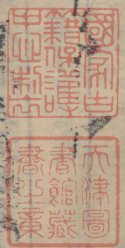 國家古
籍保護
中心製
天津圖
書館藏
書之章